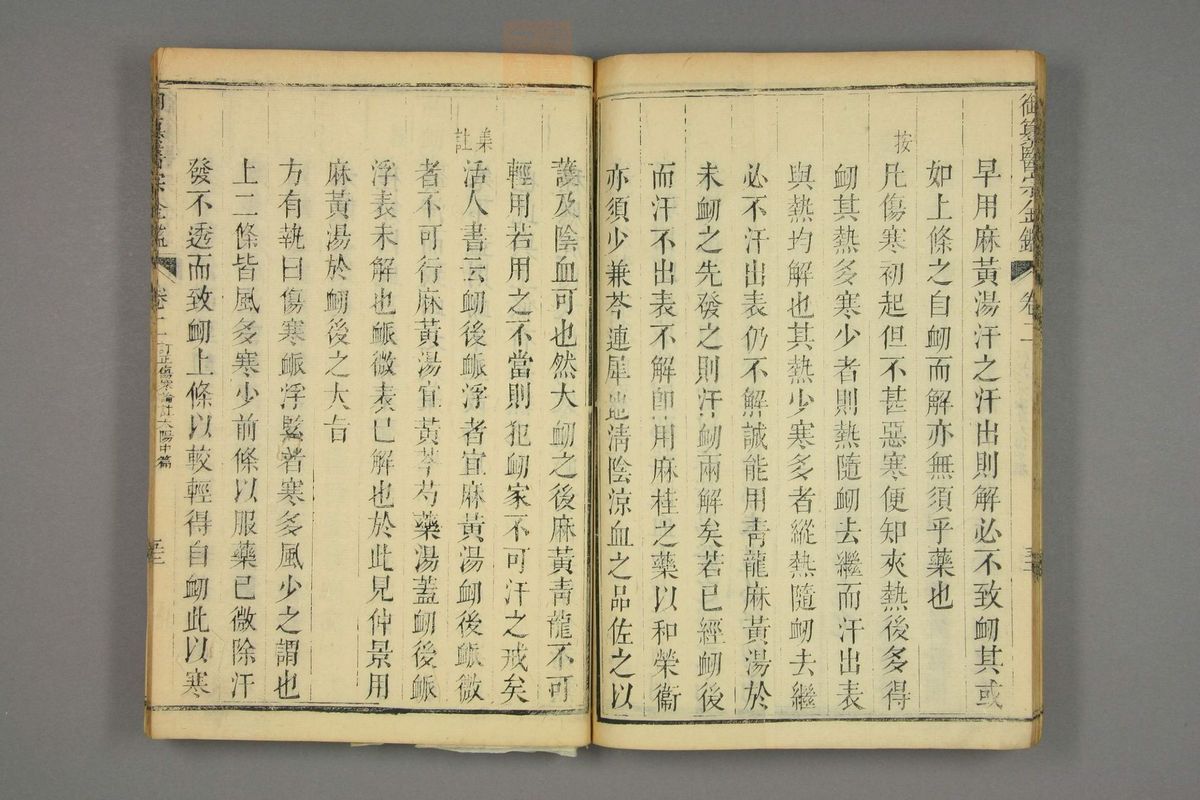 御纂醫宗金鑑 卷二
早用麻黃湯汗之汗出則解必不致衂其或
如上條之自衂而解亦無須乎藥也
按
凡傷寒初起但不甚惡寒便知夾熱後多得
衂其熱多寒少者則熱隨衂去繼而汗出表
與熱均解也其熱少寒多者縱熱隨衂去繼
必不汗出表仍不解誠能用青龍麻黃湯於
未衂之先發之則汗衂兩解矣若已經衂後
而汗不出表不解卽用麻桂之藥以和榮衞
亦須少兼芩連犀地淸陰涼血之品佐之以
護及陰血可也然大衂之後麻黃青龍不可
輕用若用之不當則犯衂家不可汗之戒矣
集註
活人書云衂後脈浮者宜麻黃湯衂後脈微
者不可行麻黃湯宜黃芩芍藥湯蓋衂後脈
浮表未解也脈微表已解也於此見仲景用
麻黃湯於衂後之大旨
方有執曰傷寒脈浮緊者寒多風少之謂也
上二條皆風多寒少前條以服藥已微除汗
發不透而致衂上條以較輕得自衂此以寒
御纂醫宗金鑑 卷二 訂正傷寒論註太陽中篇